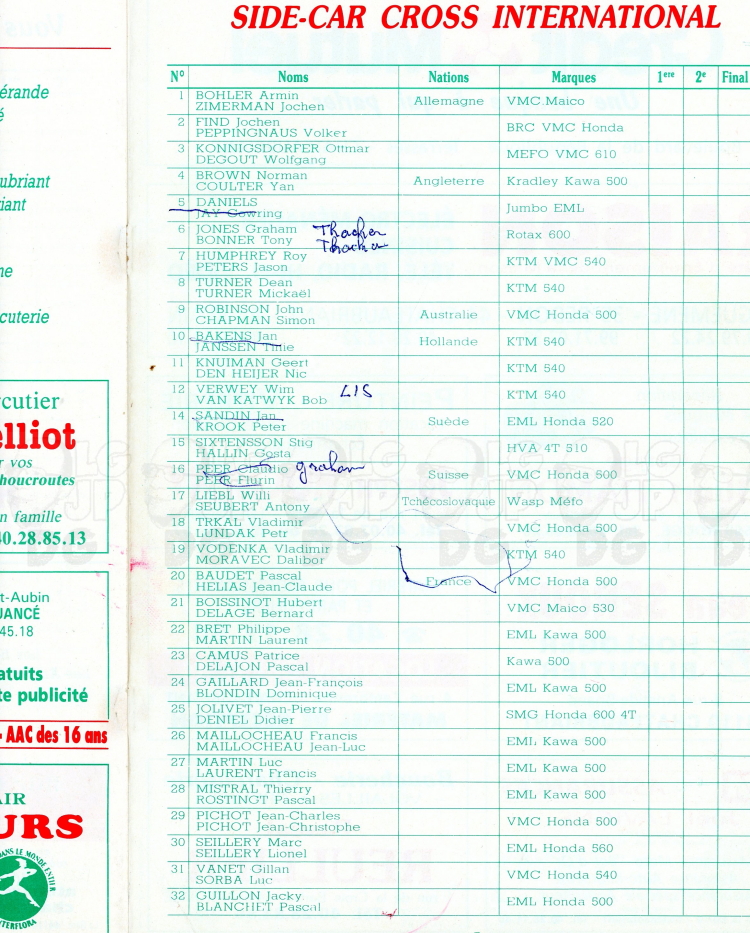 SIDE-CAR CROSS INTERNATIONAL
N° Noms Nations Marques 1ere 2e Final
1 BOHLER Armin
ZIMERMAN Jochen Allemagne VMC.Maico
2 FIND Jochen
PEPPINGNAUS Volker BRC VMC Honda
3 KONNIGSDORFER Ottmar
DEGOUT Wolfgang MEFO VMC 610
4 BROWN Norman
COULTER Yan Angleterre Kradley Kawa 500
5 DANIELS
JAY Gowring Jumbo EML
6 JONES Graham Thacker
BONNER Tony Thacker Rotax 600
7 HUMPHREY Roy
PETERS Jason KTM VMC 540
8 TURNER Dean
TURNER Mickaël KTM 540
9 ROBINSON John
CHAPMAN Simon Australie VMC Honda 500
10 BAKENS Jan
JANSSEN Tinie Hollande KTM 540
11 KNUIMAN Geert
DEN HEIJER Nic KTM 540
12 VERWEY Wim
VAN KATWYK Bob LIS KTM 540
14 SANDIN Jan
KROOK Peter Suède EML Honda 520
15 SIXTENSSON Stig
HALLIN Gosta HVA 4T 510
16 PEER Claudio graham
PEER Flurin Suisse VMC Honda 600
17 LIEBL Willi
SEUBERT Antony Tchécoslovaquie Wasp Méfo
18 TRKAL Vladimir
LUNDAK Petr VMC Honda 500
19 VODENKA Vladimir
MORAVEC Dalibor KTM 540
20 BAUDET Pascal
HELIAS Jean-Claude France VMC Honda 500
21 BOISSINOT Hubert
DELAGE Bernard VMC Maico 530
22 BRET Philippe
MARTIN Laurent EML Kawa 500
23 CAMUS Patrice
DELAJON Pascal Kawa 500
24 GAILLARD Jean-François
BLONDIN Dominique EML Kawa 500
25 JOLIVET Jean-Pierre
DENIEL Didier SMG Honda 600 4T
26 MAILLOCHEAU Francis
MAILLOCHEAU Jean-Luc EML Kawa 500
27 MARTIN Luc
LAURENT Francis EML Kawa 500
28 MISTRAL Thierry
ROSTINGT Pascal EML Kawa 500
29 PICHOT Jean-Charles
PICHOT Jean-Christophe VMC Honda 500
30 SEILLERY Marc
SEILLERY Lionel EML Honda 560
31 VANET Gillan
SORBA Luc VMC Honda 540
32 GUILLON Jacky
BLANCHET Pascal EML Honda 500
érande
é
ubriant
iant
ne
cuterie
cutier
elliot
r vos
houcroutes
n famille
40.28.85.13
t-Aubin
UANCÉ
45.18
atuits
te publicité
- AAC des 16 ans
AIR
URS
DANS LE MONDE ENTIER
INTERFLORA
LG
JP
DG